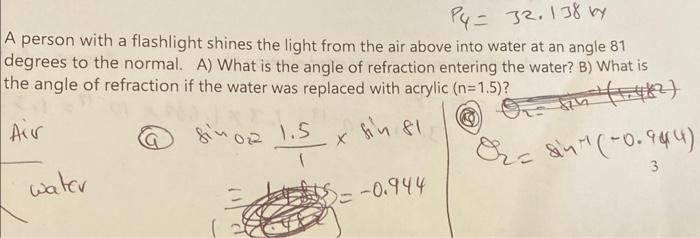 P4 = 32.138
A person with a flashlight shines the light from the air above into water at an angle 81
degrees to the normal. A) What is the angle of refraction entering the water? B) What is
the angle of refraction if the water was replaced with acrylic (n=1.5)?
Air
water
a sin θ2 = 1.5/1 × sin 81
= -0.944
θ2 = sin⁻¹(-0.944)
3